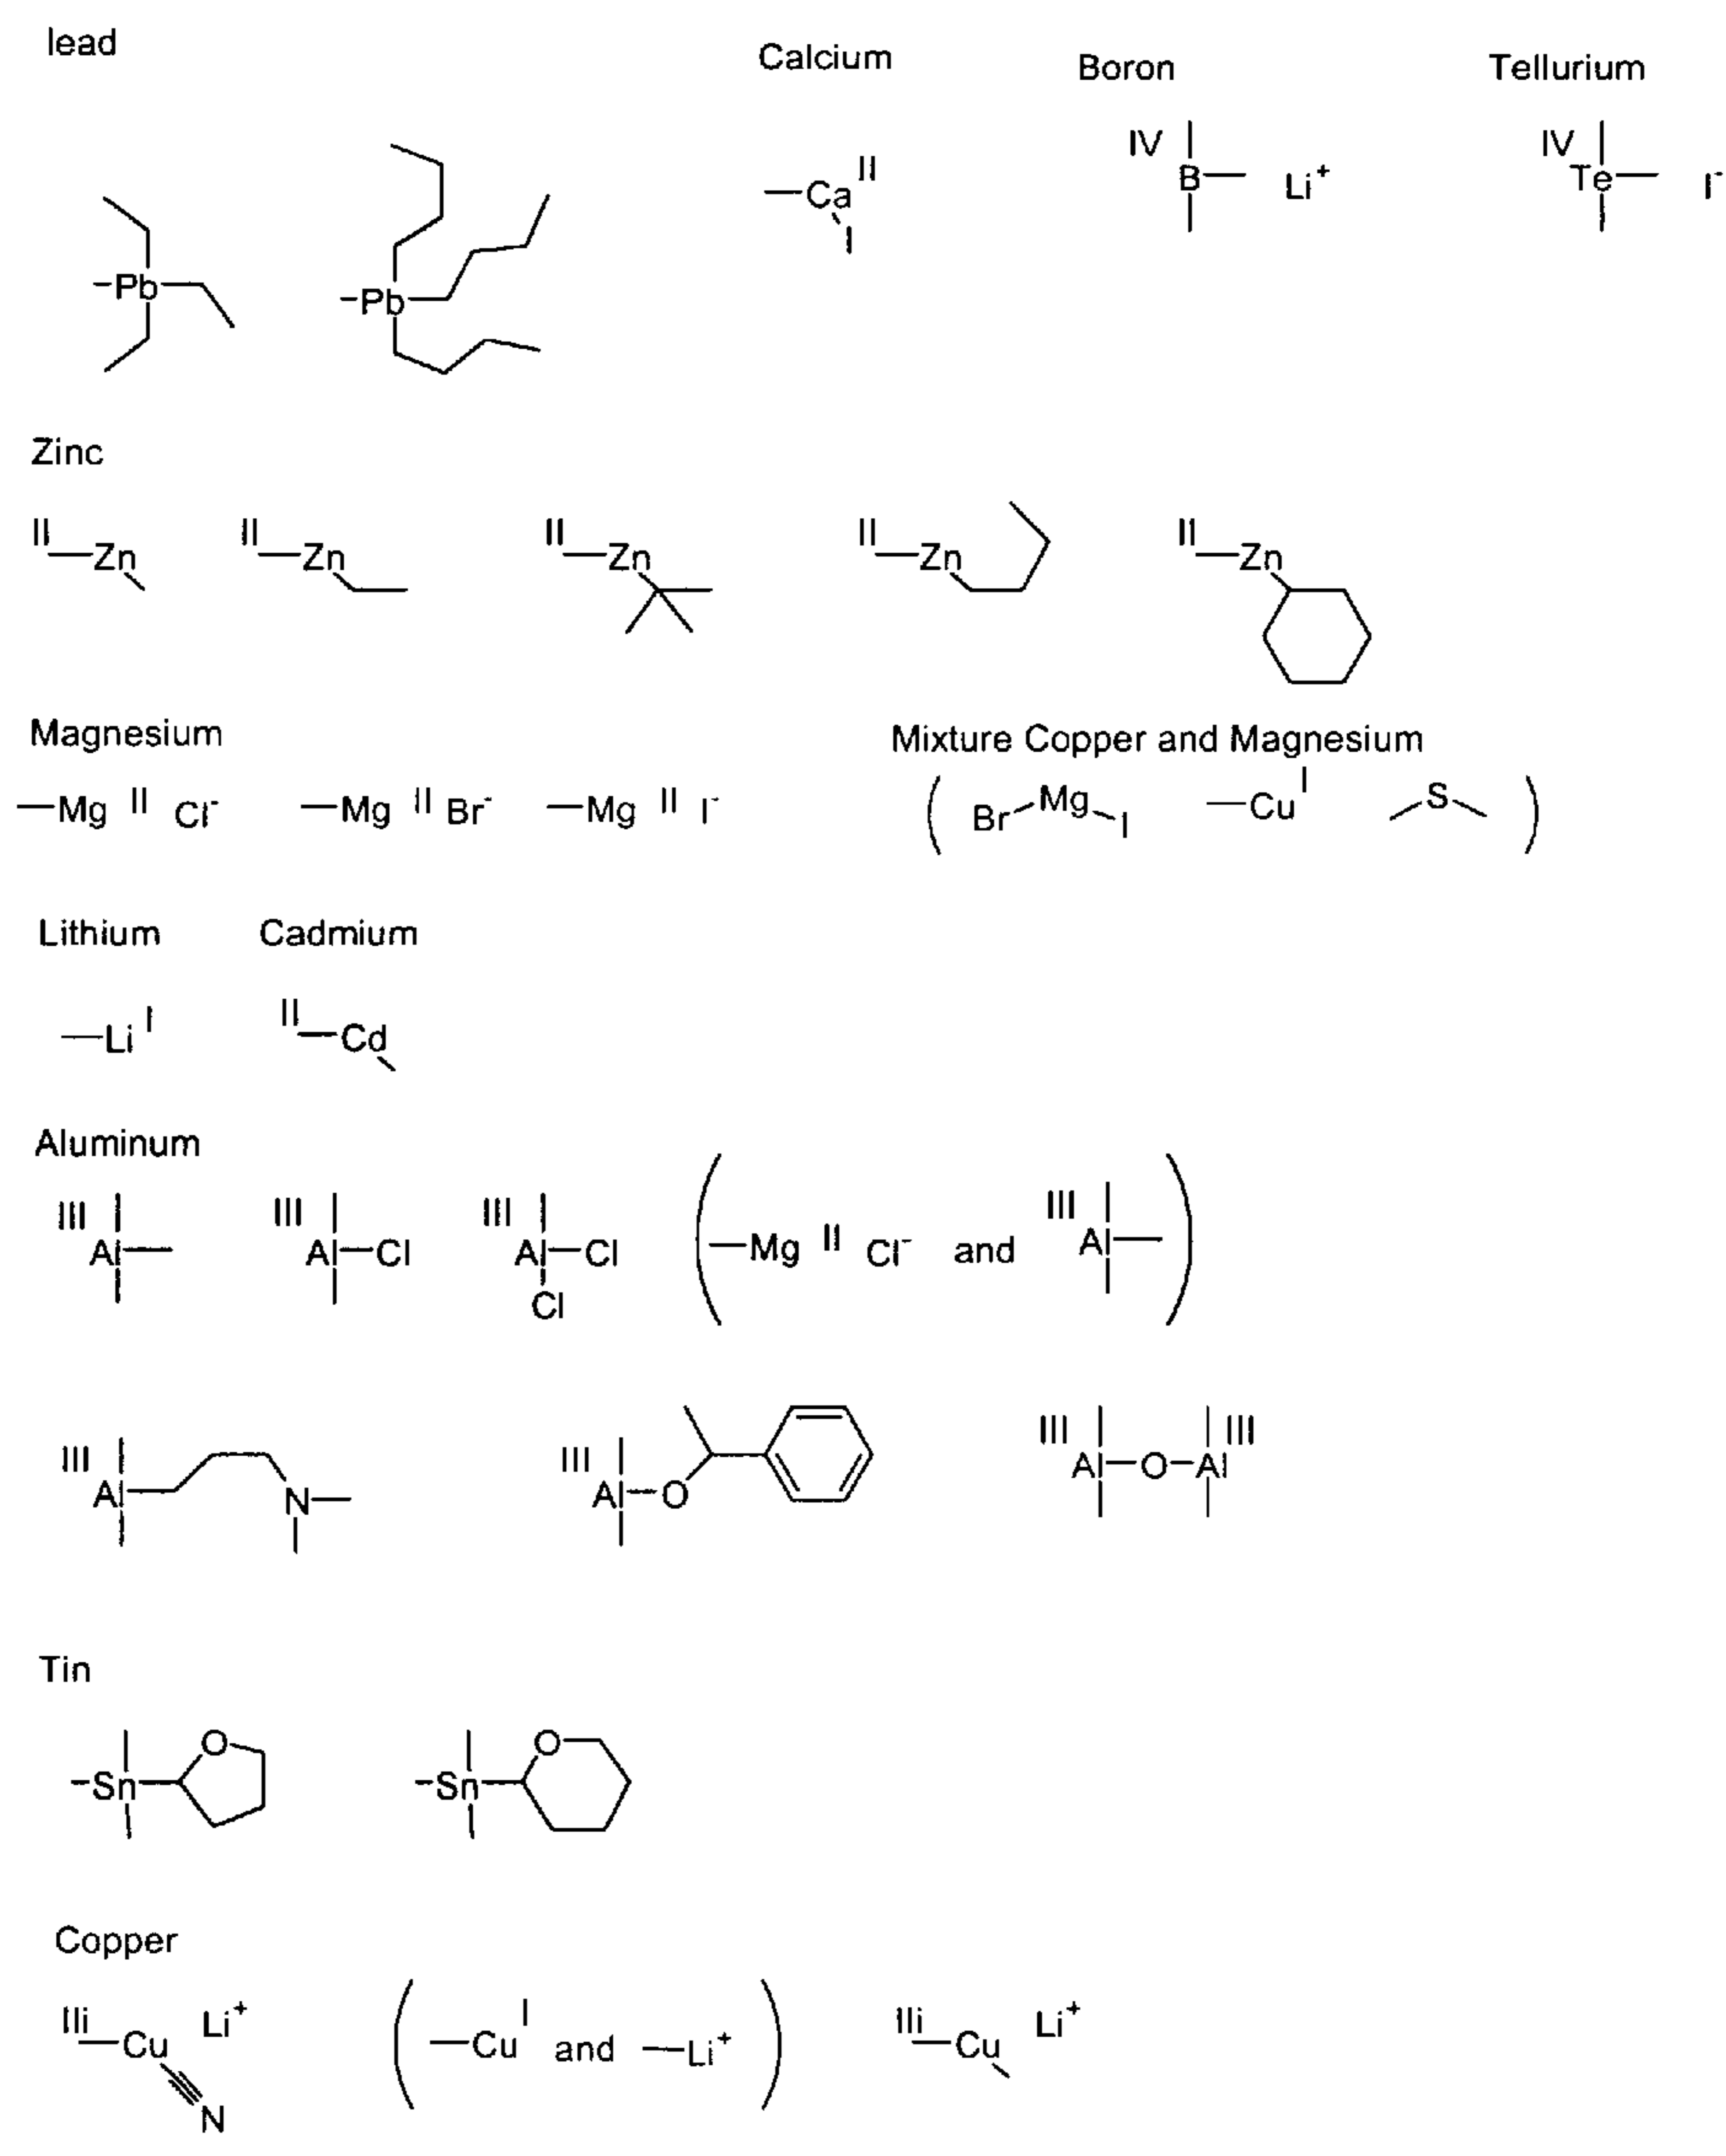 lead
Calcium
Boron
Tellurium
Pb
Pb
Ca II
I
IV
B Li+
IV
Te I-
Zinc
II Zn
II Zn
II Zn
II Zn
II Zn
Magnesium
Mg II Cl-
Mg II Br-
Mg II I-
Mixture Copper and Magnesium
( Br Mg I Cu I S )
Lithium
Cadmium
Li I
II Cd
Aluminum
III
Al
III
Al Cl
III
Al Cl
Cl
( Mg II Cl- and III Al )
III
Al N
III
Al O
III III
Al O Al
Tin
Sn O
Sn O
Copper
IIi Cu Li+
N
( Cu I and Li+ )
IIi Cu Li+